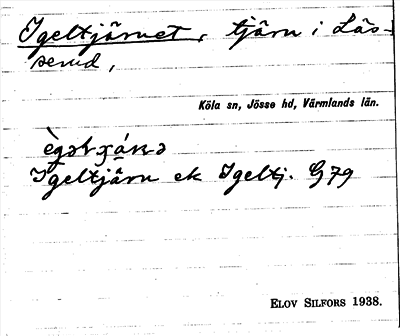 Igeltjärnet, tjärn i Läs-
serud,
Köla sn, Jösse hd, Värmlands län.
Igeltjärn ek Igeltj. G79
ELOV SILFORS 1938.